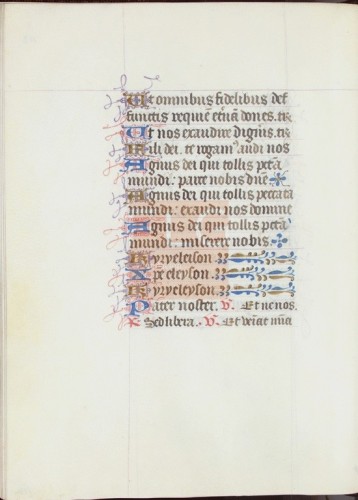 Ut omnibus fidelibus def
functis requiē etnā dones. te
Ut nos exaudire dignis. te
Fili dei. te rogamꝰ audi nos
Agnus dei qui tollis pctā
mundi: parce nobis dñe
Agnus dei qui tollis peccata
mundi: exaudi nos domine
Agnus dei qui tollis pctā
mundi: miserere nobis.
Kyryeleyson.
Xp̄eleyson.
Kyryeleyson.
Pater noster. V. Et ne nos.
R Sed libera. V. Et veniat